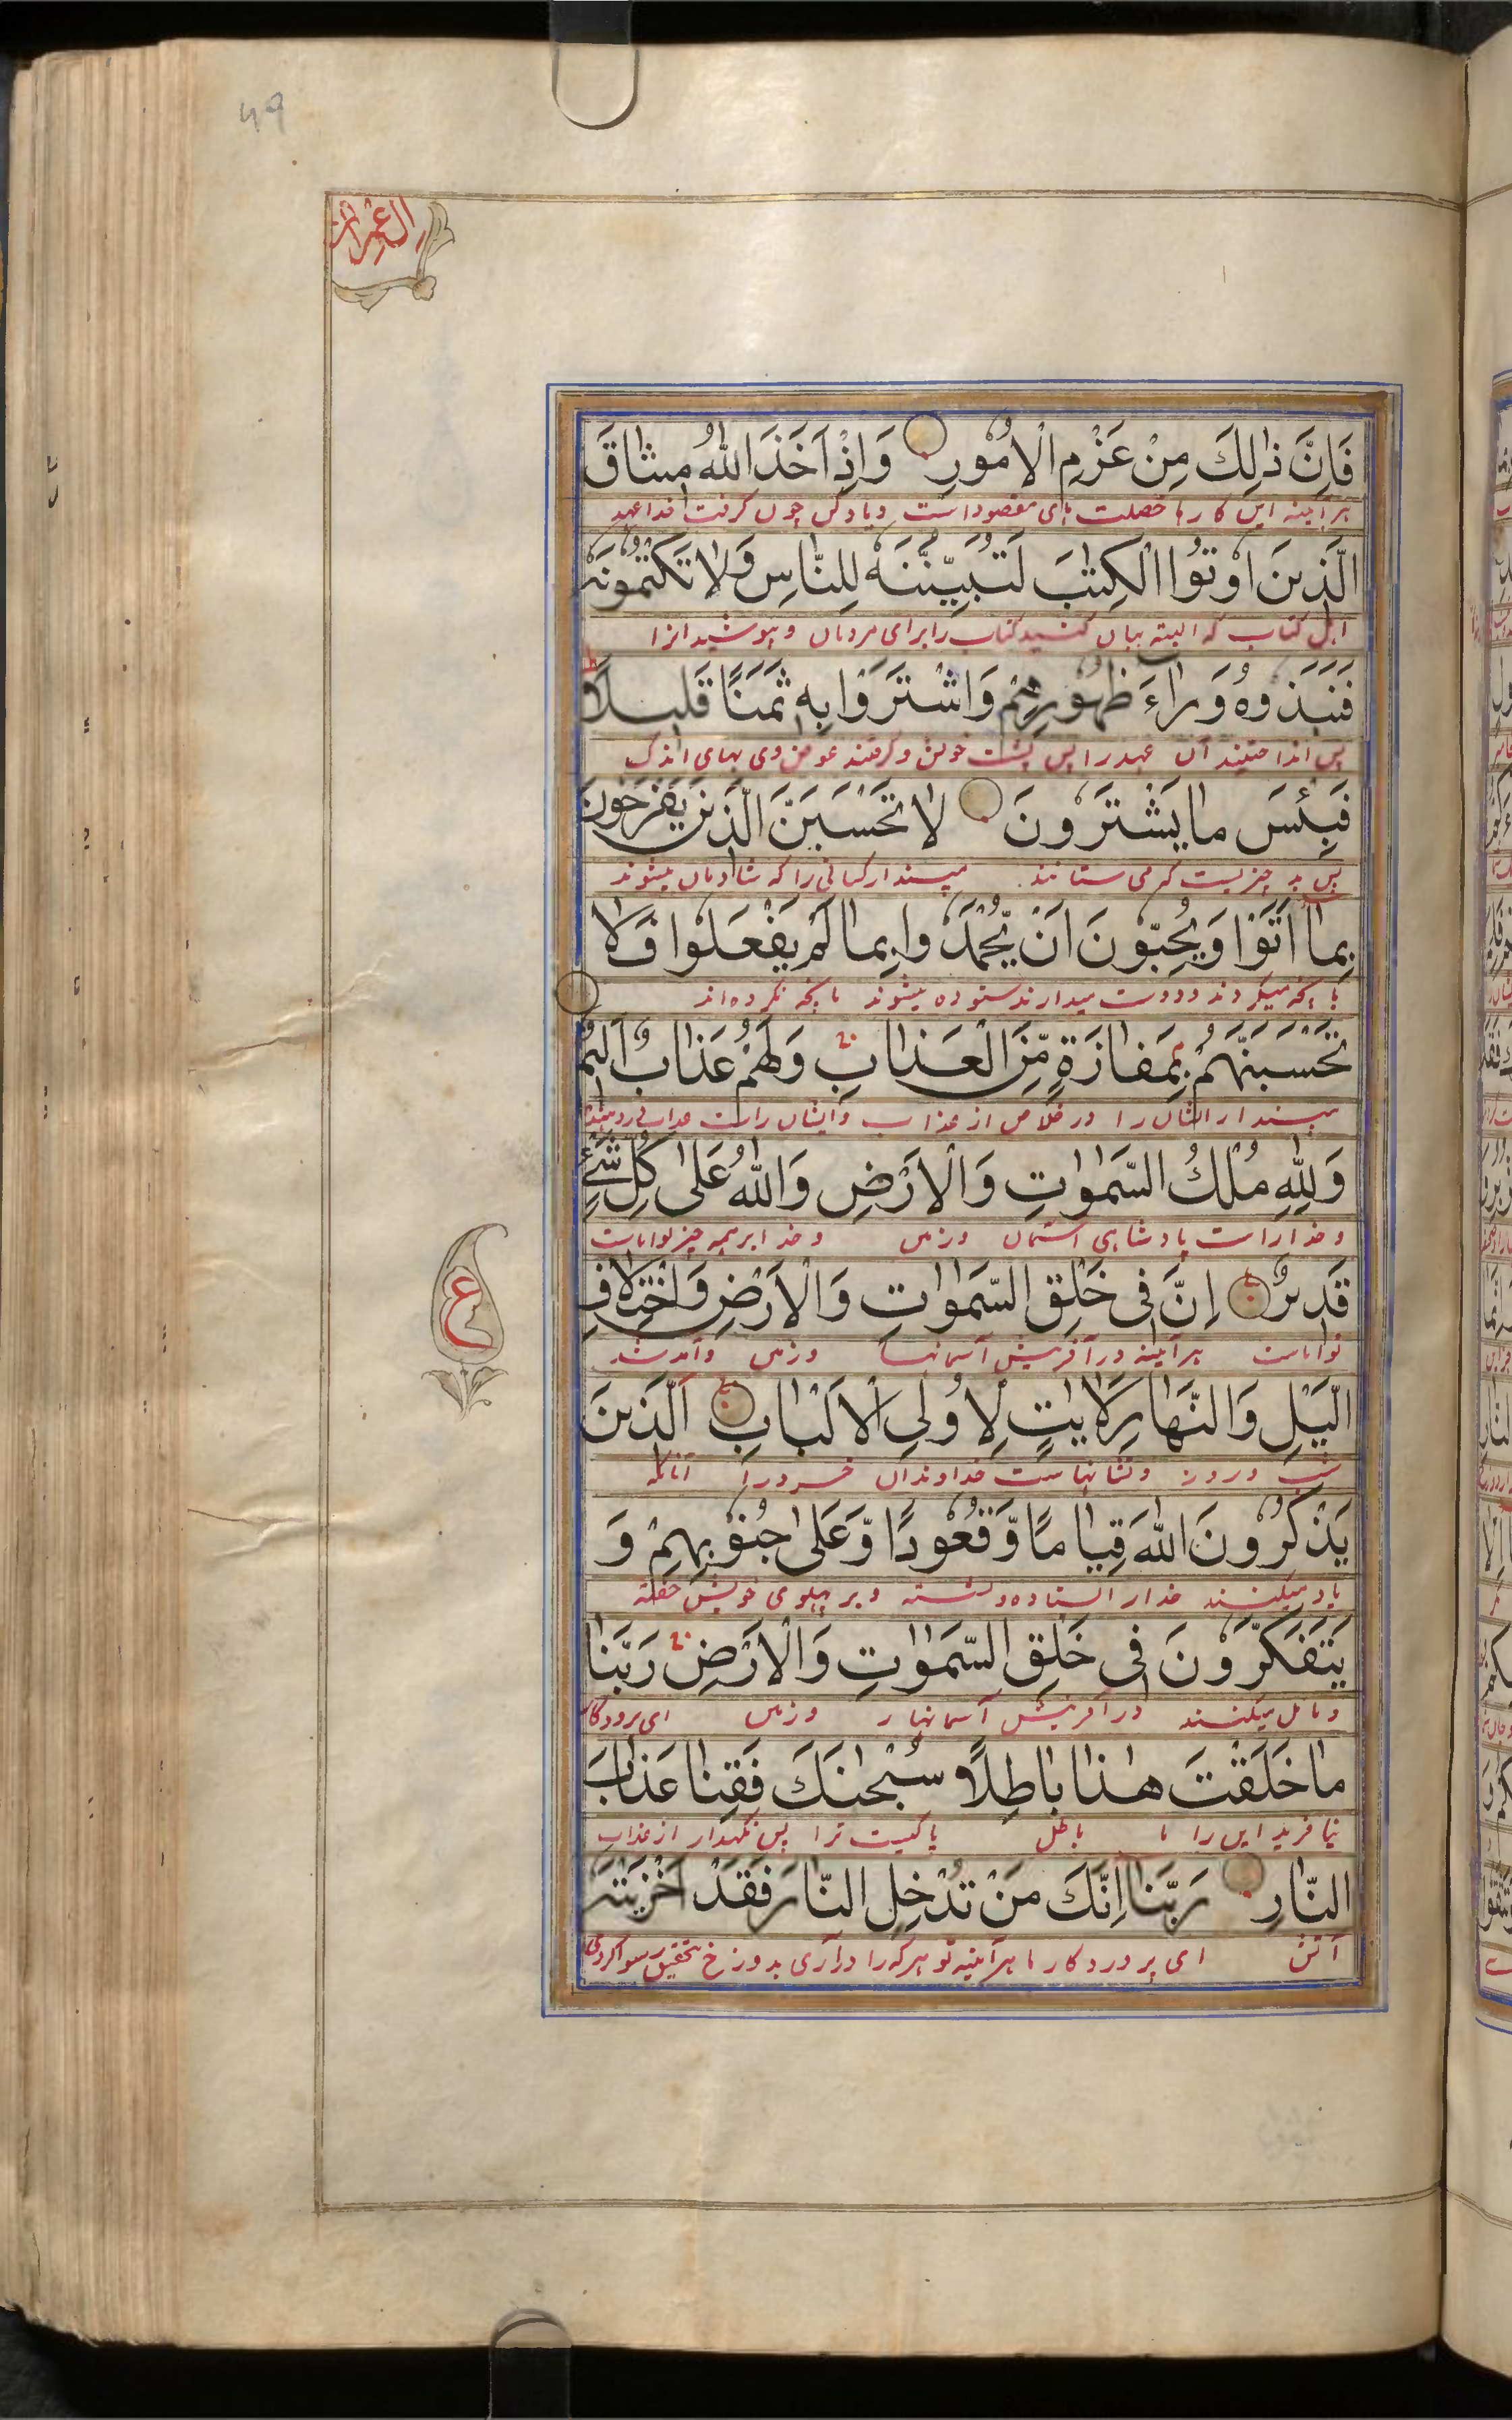 49
ال عمران
فَاِنَّ ذٰلِكَ مِنْ عَزْمِ الْاُمُوْرِ وَاِذْ اَخَذَ اللّٰهُ مِیْثَاقَ
هر آئینه این کارها خصلت های مقصود است و یاد کن چون گرفت خدا عهد
الَّذِیْنَ اُوْتُوا الْكِتٰبَ لَتُبَیِّنُنَّهٗ لِلنَّاسِ وَلَا تَكْتُمُوْنَهٗ
اهل کتاب که البته بیان کنید کتاب را برای مردمان و بپوشید انرا
فَنَبَذُوْهُ وَرَاءَ ظُهُوْرِهِمْ وَاشْتَرَوْا بِهٖ ثَمَنًا قَلِیْلًا
پس انداختند آن عهد را پس پشت خویش و گرفتند عوض وی بهای اندک
فَبِئْسَ مَا یَشْتَرُوْنَ لَا تَحْسَبَنَّ الَّذِیْنَ یَفْرَحُوْنَ
پس بد چیزیست که می ستانند میپندار کسانی را که شادمان میشوند
بِمَا اَتَوْا وَیُحِبُّوْنَ اَنْ یُّحْمَدُوا بِمَا لَمْ یَفْعَلُوا فَلَا
بانچه میکردند و دوست میدارند ستوده میشوند بانچه نکرده اند
تَحْسَبَنَّهُمْ بِمَفَازَةٍ مِّنَ الْعَذَابِ وَلَهُمْ عَذَابٌ اَلِیْمٌ
مپندار ایشان را در خلاص از عذاب و ایشان راست عذاب
وَلِلّٰهِ مُلْكُ السَّمٰوٰتِ وَالْاَرْضِ وَاللّٰهُ عَلٰی كُلِّ شَیْءٍ
و خدا راست پادشاهی آسمان و زمین و خدا بر همه چیز تواناست
قَدِیْرٌ اِنَّ فِی خَلْقِ السَّمٰوَاتِ وَالْاَرْضِ وَاخْتِلَافِ
تواناست هر آئینه در آفرینش آسمانها و زمین و آمد شد
الَّیْلِ وَالنَّهَارِ لَاٰیٰتٍ لِاُولِی الْاَلْبَابِ اَلَّذِیْنَ
شب و روز و نشانهاست خداوندان خرد را آنانکه
یَذْكُرُوْنَ اللّٰهَ قِیَامًا وَّقُعُوْدًا وَّعَلٰی جُنُوْبِهِمْ وَ
یاد میکنند خدا را استاده و نشسته و بر پهلوی خویش خفته
یَتَفَكَّرُوْنَ فِی خَلْقِ السَّمٰوٰتِ وَالْاَرْضِ رَبَّنَا
و تامل میکنند در آفرینش آسمانها و زمین ای پروردگار
مَا خَلَقْتَ هٰذَا بَاطِلًا سُبْحٰنَكَ فَقِنَا عَذَابَ
نیافریدی این را باطل پاکیست ترا پس نگهدار از عذاب
النَّارِ رَبَّنَا اِنَّكَ مَنْ تُدْخِلِ النَّارَ فَقَدْ اَخْزَیْتَهٗ
آتش ای پروردگار ما هر آئینه تو هر که را در آری بدوزخ بتحقیق رسوا کردی
ع